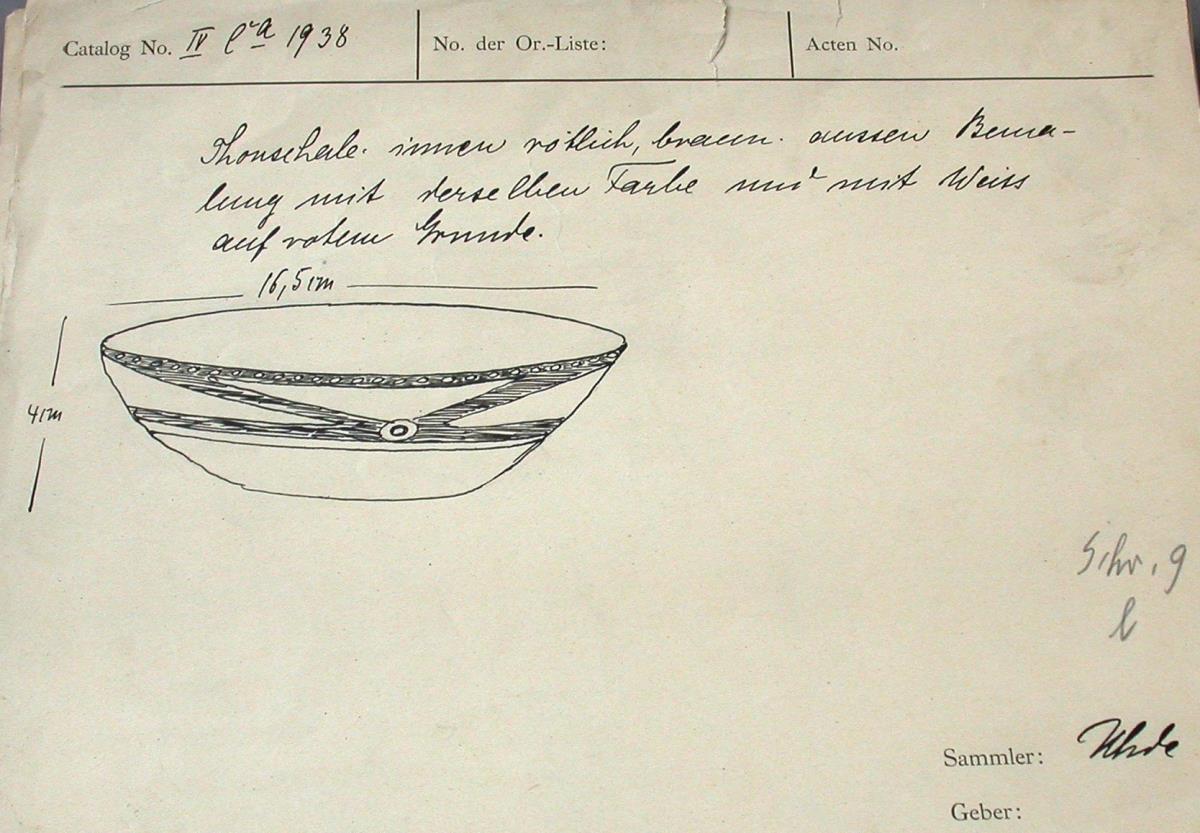 Catalog No. IV Ca 1938 No. der Or.-Liste: Acten No.
Thonschale. innen rötlich, braun. aussen Bema-
lung mit derselben Farbe und mit Weiss
auf rotem Grunde.
16,5 cm
4 cm
Schr. 9
l
Sammler: Uhde
Geber: